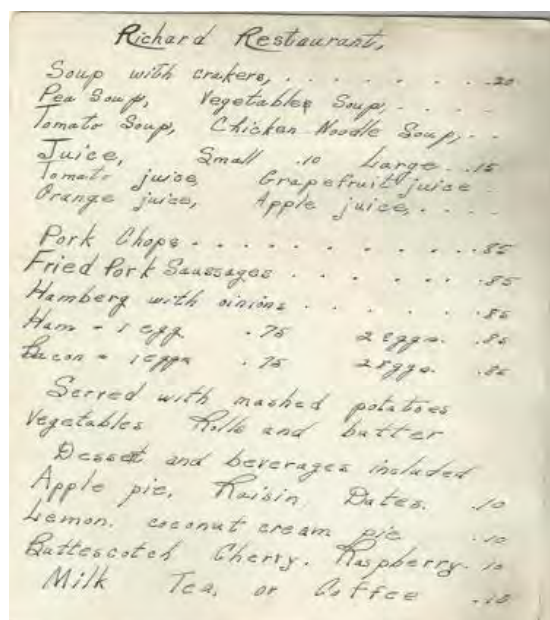 Richard Restaurant,
Soup with crakers, . . . . . . . . .20
Pea Soup, Vegetables Soup, . . .
Tomato Soup, Chicken Noodle Soup, . .
Juice, Small .10 Large . .15
Tomato juice Grapefruit juice .
Orange juice, Apple juice, . . . .
Pork Chops . . . . . . . . . . .85
Fried Pork Saussages . . . . . . .85
Hamberg with oinions . . . . . . .85
Ham - 1 egg .75 2 eggs. .85
Bacon - 1 eggs .75 2 eggs. .85
Serred with mashed potatoes
Vegetables Rolls and butter
Desset and beverages included
Apple pie, Raisin, Dates. .10
Lemon. coconut cream pie .10
Buttescotch Cherry. Raspberry. 10
Milk Tea, or Coffee .10